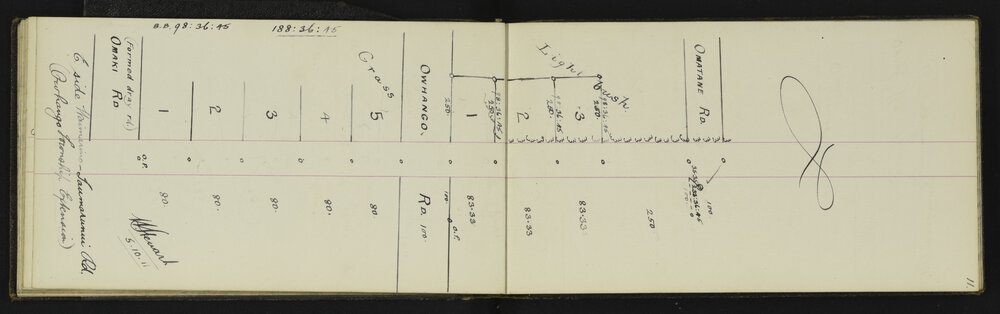 B.B. 98:36:45
188:36:45
E side Waimarino-Taumarunui Rd.
(Owhango Township Extension)
(Formed dray rd.)
OMAKI RD
1
2
3
4
5
Grass
OWHANGO. RD. 100
250
1
98:36:45
250
2
98:36:45
250
3
98:36:45
250
Light Bush
OMATANE RD.
O.P.
80.
80.
80.
80.
80.
100
O.P.
83.33
83.33
83.33
250
100
5.10.11
11.